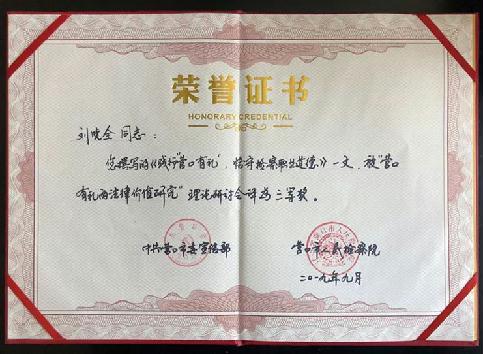 荣誉证书
HONORARY CREDENTIAL
刘晓全 同志：
您撰写的《践行"营口有礼"，恪守检察职业道德》一文，被"营口
有礼的法律价值研究"理论研讨会评为三等奖。
中共营口市委宣传部 营口市人民检察院
二〇一九年九月